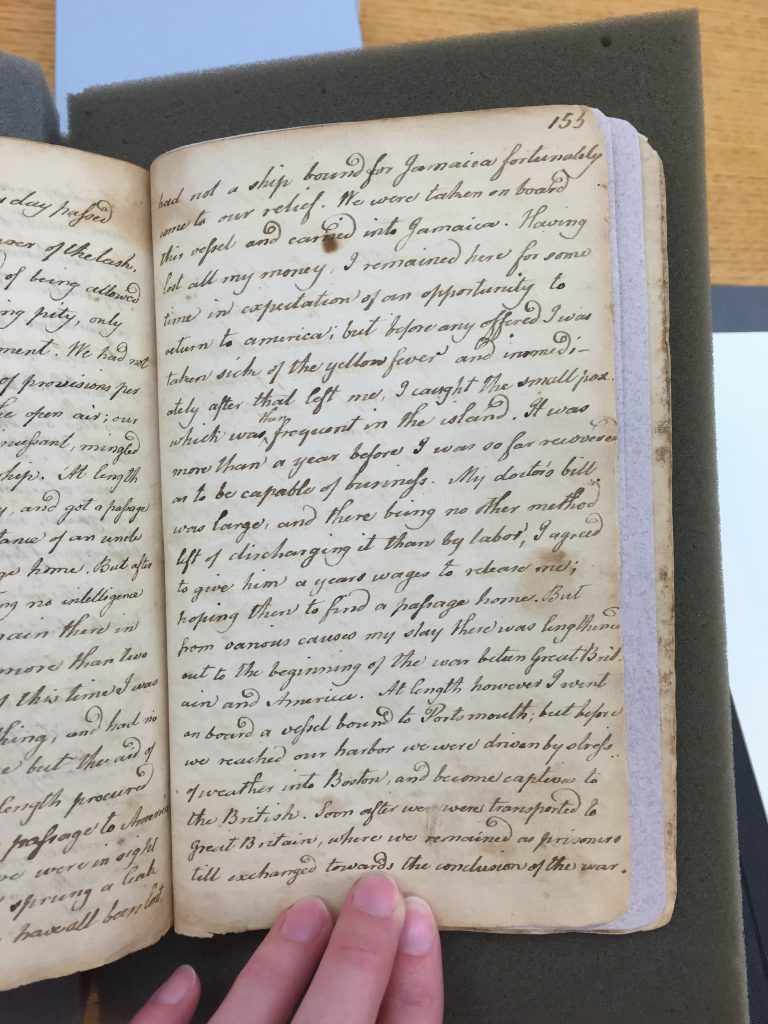 day passed
of the lash,
of being allowed
ing pity, only
ment. We had not
of provisions per
open air; our
nuissant, mingled
ship. At length
y, and got a passage
tance of an uncle
ge home. But after
ng no intellegence
main there in
more than two
f this time I was
thing, and had no
e but the aid of
length procured
passage to America
we were in sight
sprung a leak
have all been lost,
155
had not a ship bound for Jamaica fortunately
come to our relief. We were taken on board
this vessel and carried into Jamaica. Having
lost all my money, I remained here for some
time in expectation of an opportunity to
return to america; but before any offered I was
taken sick of the yellow fever and immedi-
ately after that left me, I caught the small pox.
which was then frequent in the island. It was
more than a year before I was so far recovered
as to be capable of business. My doctor's bill
was large, and there being no other method
left of discharging it than by labor, I agreed
to give him a years wages to release me;
hoping then to find a passage home. But
from various causes my stay there was lengthened
out to the beginning of the war between Great Brit-
ain and America. At length however I went
on board a vessel bound to Portsmouth; but before
we reached our harbor we were driven by stress
of weather into Boston, and become captives to
the British. Soon after we were transported to
Great Britain, where we remained as prisoners
till exchanged towards the conclusion of the war.